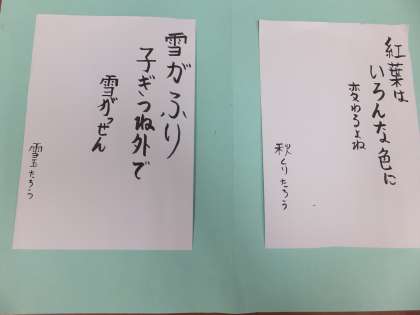 紅葉は
いろんな色に
変わるよね
秋くりたろう
雪がふり
子ぎつね外で
雪がっせん
雪玉たろう